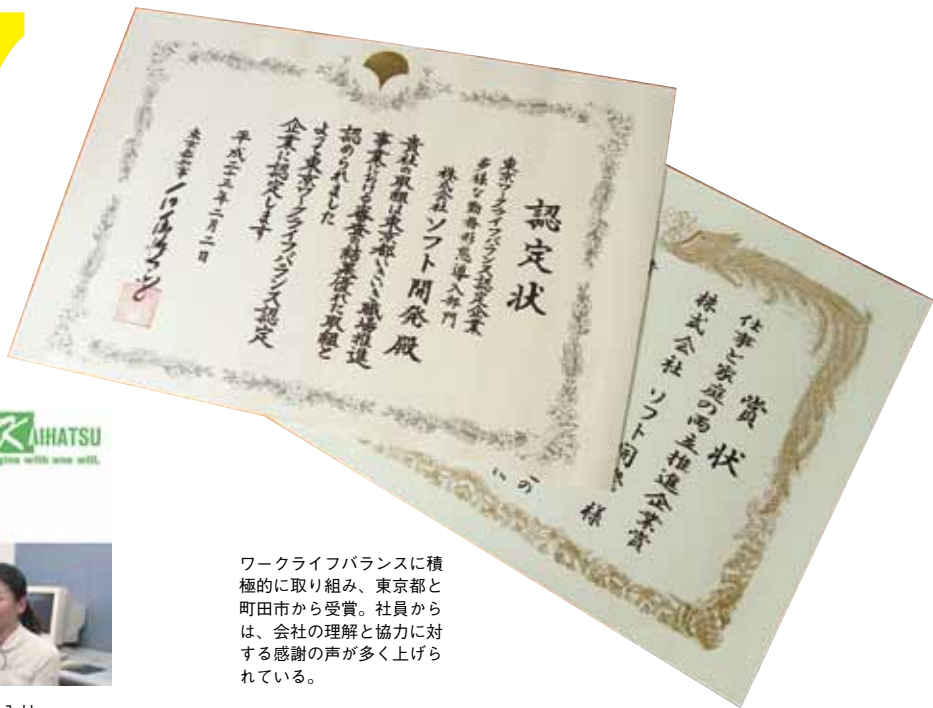 認定状
東京ワークライフバランス認定企業
多様な勤務形態導入部門
株式会社 ソフト開発 殿
貴社の取組は東京都いきいき職場推進
事業における審査の結果優れた取組と
認められました
よって東京ワークライフバランス認定
企業に認定します
平成二十三年二月二日
東京都知事
賞状
仕事と家庭の両立推進企業賞
株式会社 ソフト開発 様
KAIHATSU
with one will.
ワークライフバランスに積
極的に取り組み、東京都と
町田市から受賞。社員から
は、会社の理解と協力に対
する感謝の声が多く上げら
れている。